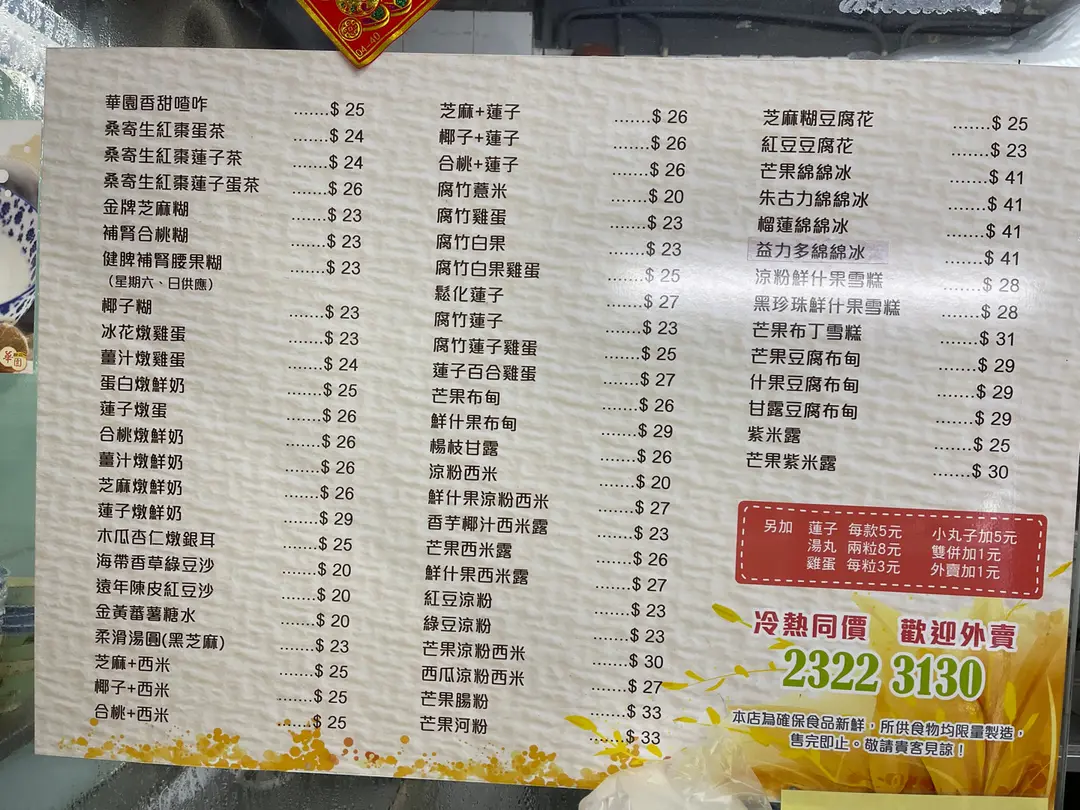 04-40
華園香甜喳咋 .......$ 25
桑寄生紅棗蛋茶 .......$ 24
桑寄生紅棗蓮子茶 .......$ 24
桑寄生紅棗蓮子蛋茶 .......$ 26
金牌芝麻糊 .......$ 23
補腎合桃糊 .......$ 23
健脾補腎腰果糊 .......$ 23
(星期六、日供應)
椰子糊 .......$ 23
冰花燉雞蛋 .......$ 23
薑汁燉雞蛋 .......$ 24
蛋白燉鮮奶 .......$ 25
蓮子燉蛋 .......$ 26
合桃燉鮮奶 .......$ 26
薑汁燉鮮奶 .......$ 26
芝麻燉鮮奶 .......$ 26
蓮子燉鮮奶 .......$ 29
木瓜杏仁燉銀耳 .......$ 25
海帶香草綠豆沙 .......$ 20
遠年陳皮紅豆沙 .......$ 20
金黃蕃薯糖水 .......$ 20
柔滑湯圓(黑芝麻) .......$ 23
芝麻+西米 .......$ 25
椰子+西米 .......$ 25
合桃+西米 .......$ 25
芝麻+蓮子 .......$ 26
椰子+蓮子 .......$ 26
合桃+蓮子 .......$ 26
腐竹薏米 .......$ 20
腐竹雞蛋 .......$ 23
腐竹白果 .......$ 23
腐竹白果雞蛋 .......$ 25
鬆化蓮子 .......$ 27
腐竹蓮子 .......$ 23
腐竹蓮子雞蛋 .......$ 25
蓮子百合雞蛋 .......$ 27
芒果布甸 .......$ 26
鮮什果布甸 .......$ 29
楊枝甘露 .......$ 26
涼粉西米 .......$ 20
鮮什果涼粉西米 .......$ 27
香芋椰汁西米露 .......$ 23
芒果西米露 .......$ 26
鮮什果西米露 .......$ 27
紅豆涼粉 .......$ 23
綠豆涼粉 .......$ 23
芒果涼粉西米 .......$ 30
西瓜涼粉西米 .......$ 27
芒果腸粉 .......$ 33
芒果河粉 .......$ 33
芝麻糊豆腐花 .......$ 25
紅豆豆腐花 .......$ 23
芒果綿綿冰 .......$ 41
朱古力綿綿冰 .......$ 41
榴蓮綿綿冰 .......$ 41
益力多綿綿冰 .......$ 41
涼粉鮮什果雪糕 .......$ 28
黑珍珠鮮什果雪糕 .......$ 28
芒果布丁雪糕 .......$ 31
芒果豆腐布甸 .......$ 29
什果豆腐布甸 .......$ 29
甘露豆腐布甸 .......$ 29
紫米露 .......$ 25
芒果紫米露 .......$ 30
另加 蓮子 每款5元 小丸子加5元
湯丸 兩粒8元 雙併加1元
雞蛋 每粒3元 外賣加1元
冷熱同價 歡迎外賣
2322 3130
本店為確保食品新鮮，所供食物均限量製造，
售完即止。敬請貴客見諒！
華園